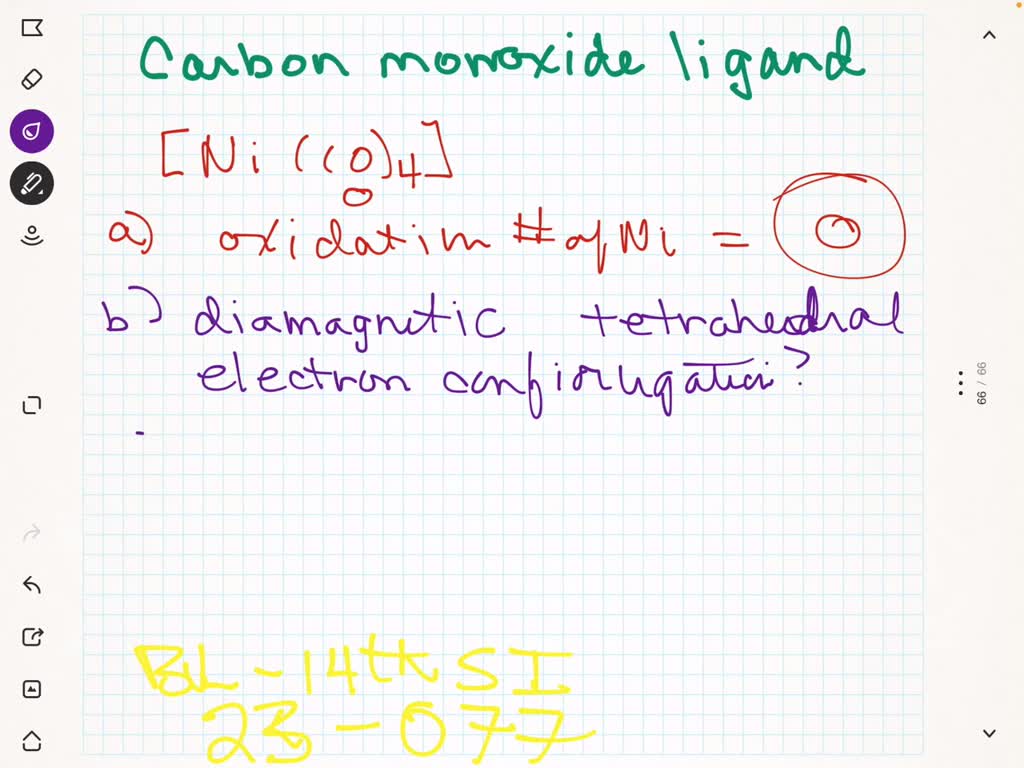 Carbon monoxide ligand
[Ni (CO)4]
0
a) oxidation # of Ni = 0
b) diamagnetic tetrahedral
electron confiorugation?
BL - 14th SI
23 - 077
66 / 66